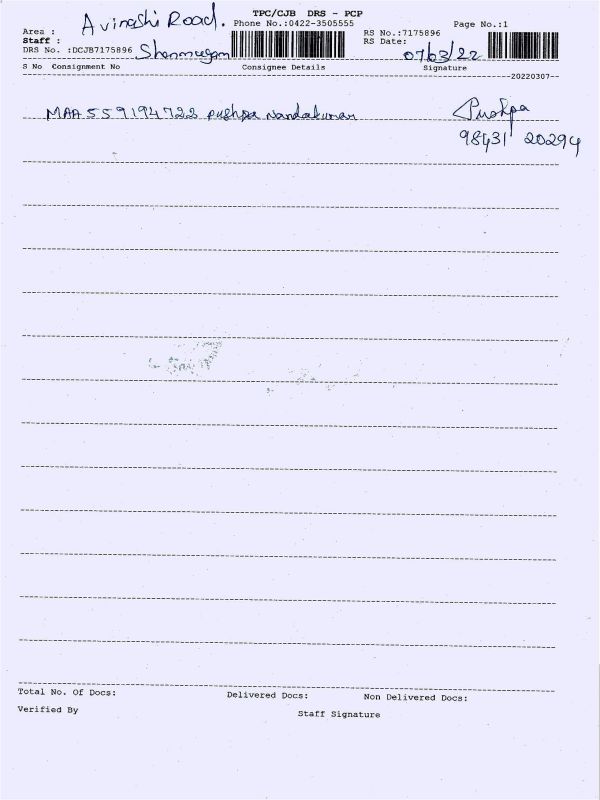 TPC/CJB DRS - PCP
Area : Avinashi Road. Phone No.:0422-3505555 RS No.:7175896 Page No.:1
Staff : Shanmugam RS Date: 07/03/22
DRS No. :DCJB7175896
S No Consignment No Consignee Details Signature
20220307
MAA559194722 Pushpa Nandakumar Pushpa
98431 20294
Total No. Of Docs: Delivered Docs: Non Delivered Docs:
Verified By Staff Signature